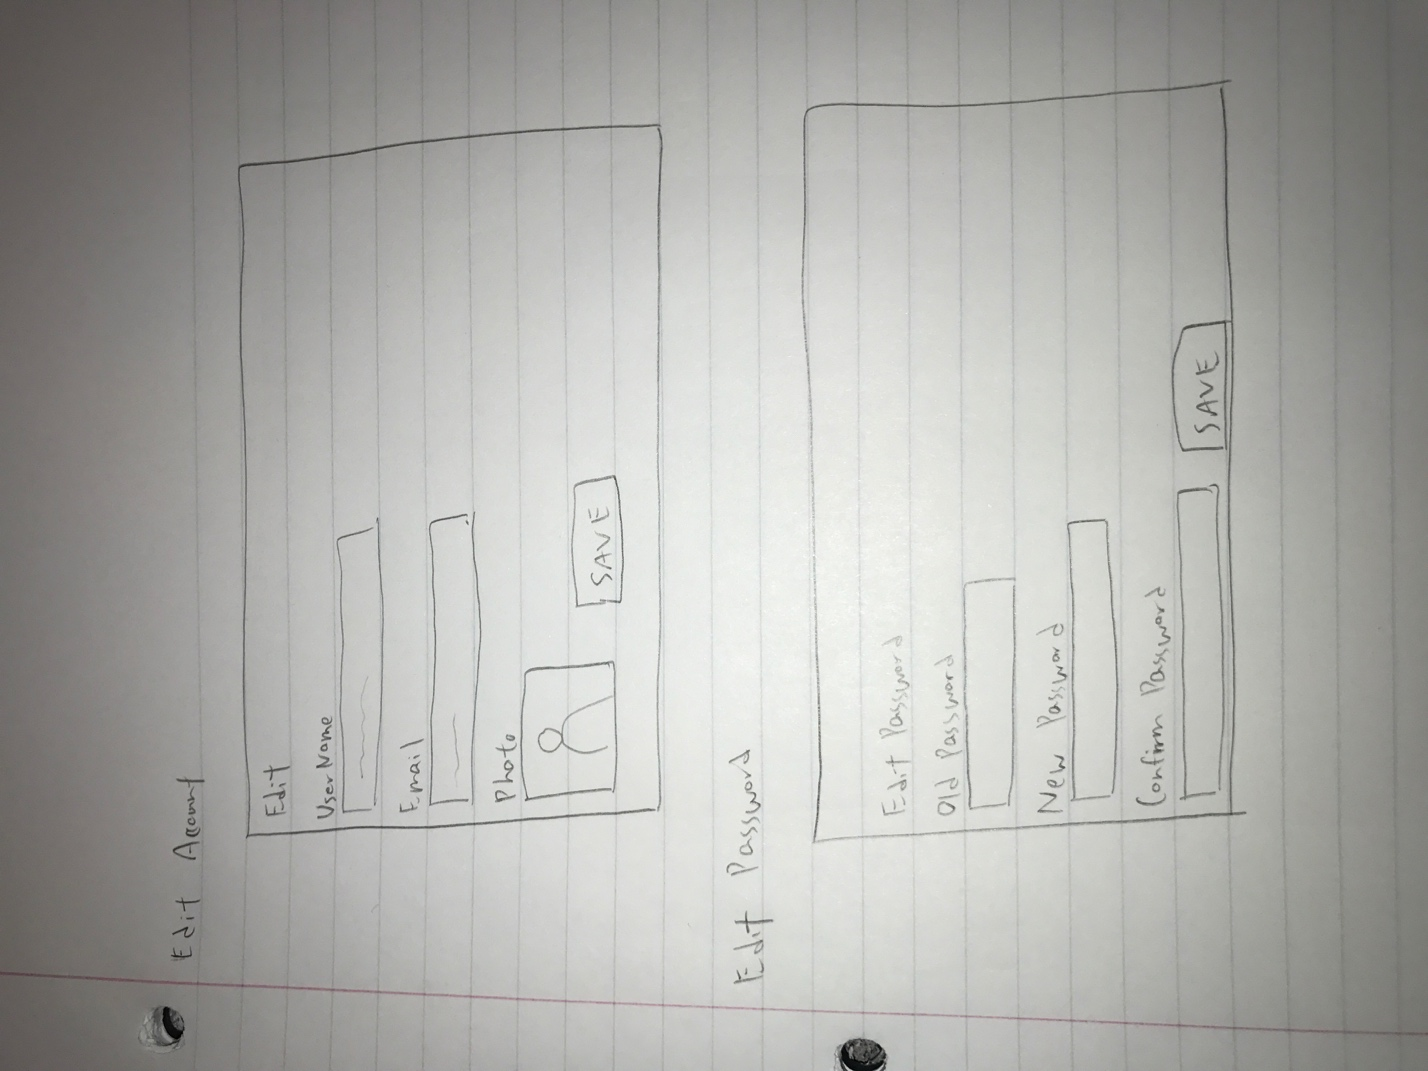 Edit Account
Edit
UserName
Email
Photo
SAVE
Edit Password
Edit Password
Old Password
New Password
Confirm Password
SAVE